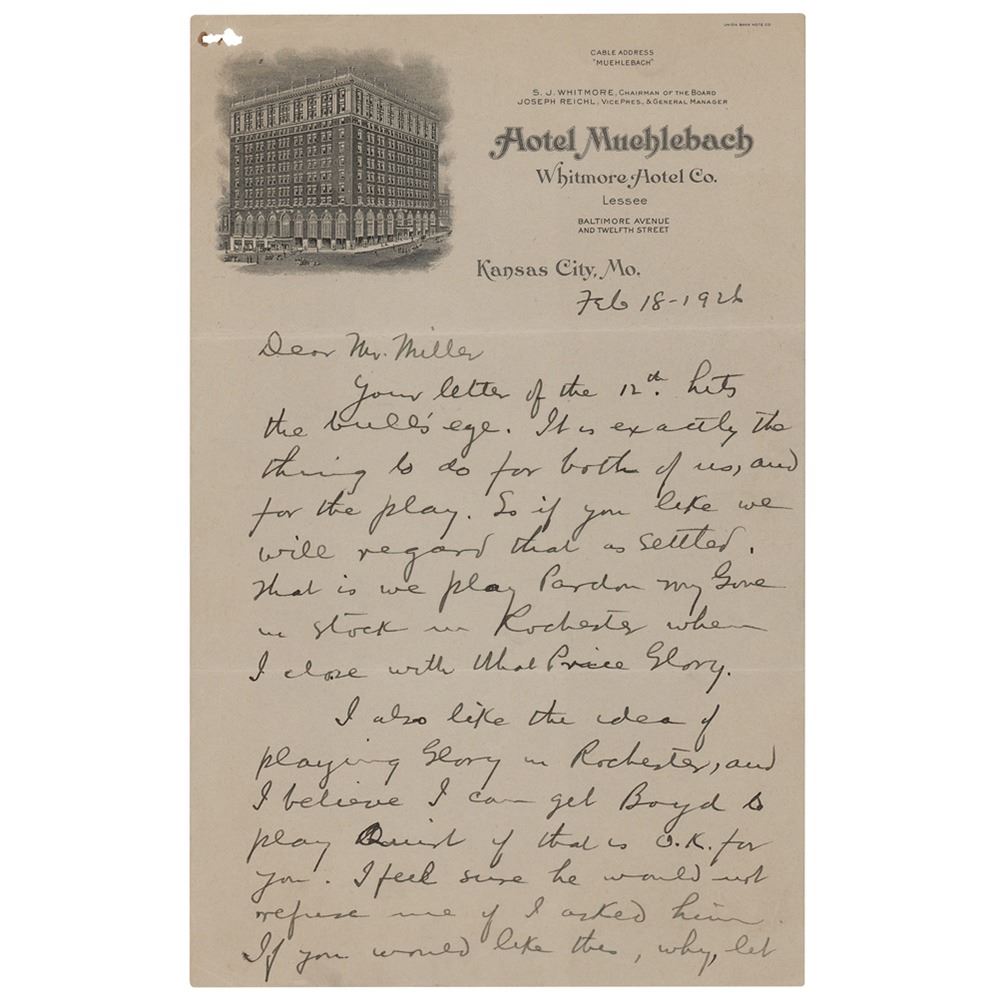 UNION BANK NOTE CO
CABLE ADDRESS
"MUEHLEBACH"
S. J. WHITMORE, CHAIRMAN OF THE BOARD
JOSEPH REICHL, VICE PRES, & GENERAL MANAGER
Hotel Muehlebach
Whitmore Hotel Co.
Lessee
BALTIMORE AVENUE
AND TWELFTH STREET
Kansas City, Mo.
Feb 18-1926
Dear Mr. Miller
Your letter of the 12th. hits
the bull's eye. It is exactly the
thing to do for both of us, and
for the play. So if you like we
will regard that as settled.
That is we play Pardon my Glove
in stock in Rochester when
I close with What Price Glory.
I also like the idea of
playing Glory in Rochester, and
I believe I can get Boyd to
play Quirt if that is O.K. for
you. I feel sure he would not
refuse me if I asked him.
If you would like this, why, let